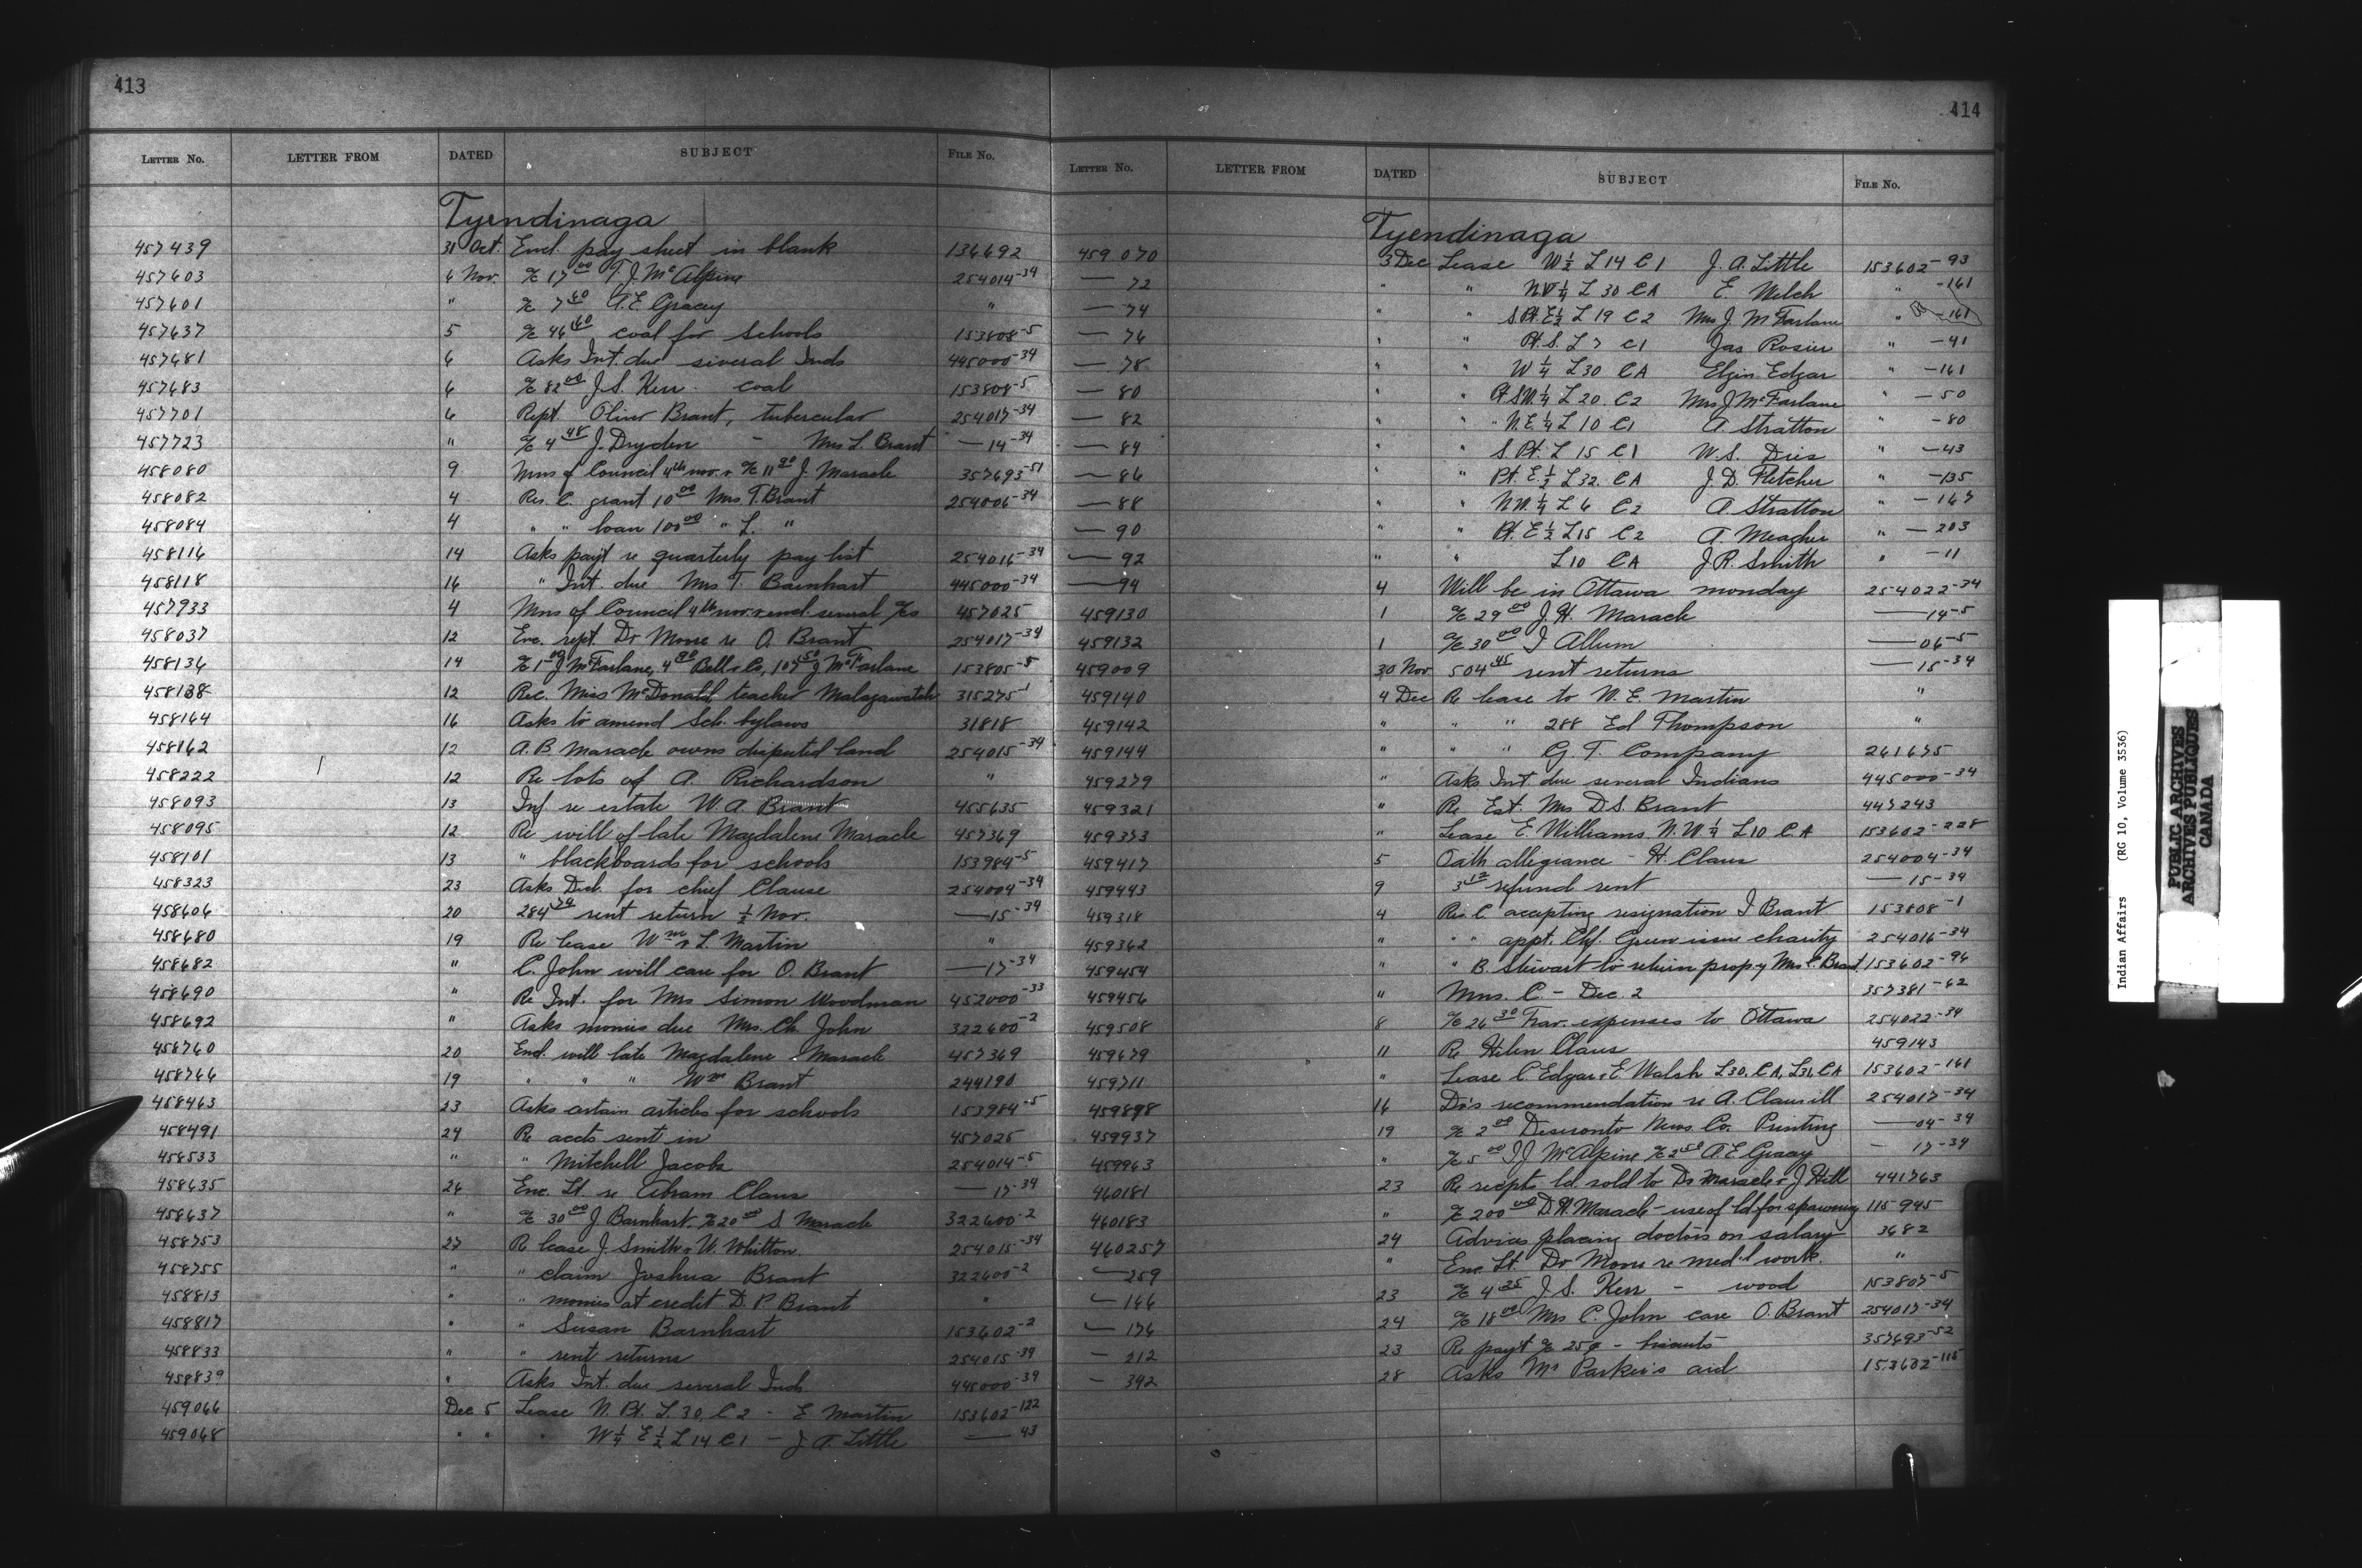 413
LETTER NO. LETTER FROM DATED SUBJECT FILE NO.
Tyendinaga
457439 31 Oct. Encl. pay sheet in blank 136692
457603 6 Nov. a/c 17.00 T. J. McAlpine 254014-34
457601 " a/c 7.60 A. E. Gracey "
457637 5 a/c 46.60 coal for schools 153808-5
457681 6 Asks Int. due several Inds 445000-34
457683 6 a/c 82.00 J. S. Kerr - coal 153808-5
457701 6 Rept. Oliver Brant, tubercular 254017-34
457723 " a/c 4.48 J. Dryden - Mrs L. Brant — 14-34
458080 9 Mins of Council 4th nov. & a/c 11.90 J. Maracle 357693-51
458082 4 Res. C. grant 10.00 Mrs T. Brant 254006-34
458084 4 " " loan 100.00 " L. "
458116 14 Asks payt re quarterly pay list 254016-34
458118 16 " Int. due Mrs T. Barnhart 445000-34
457933 4 Mins of Council 4th nov. & encl. several a/cs 457025
458037 12 Enc. rept. Dr Moore re O. Brant 254017-34
458136 14 a/c 1.00 J McFarlane, 4.90 Bell & Co, 107.50 J McFarlane 153805-5
458138 12 Rec. Miss McDonald teacher Malagawatch 315275-1
458164 16 Asks to amend Sch. bylaws 31818
458162 12 A. B. Maracle owns disputed land 254015-34
458222 12 Re lots of A. Richardson "
458093 13 Inf. re estate W. A. Brant 455635
458095 12 Re will of late Magdalene Maracle 457369
458101 13 " blackboards for schools 153984-5
458323 23 Asks Decl. for chief Clause 254004-34
458606 20 284.74 rent return ½ Nov. — 15-34
458680 19 Re lease Wm & L. Martin "
458682 " C. John will care for O. Brant — 17-34
458690 " Re Int. for Mrs Simon Woodman 452000-33
458692 " Asks monies due Mrs. Ch. John 322600-2
458760 20 Encl. will late Magdalene Maracle 457369
458766 19 " " " Wm Brant 244190
458463 23 Asks certain articles for schools 153984-5
458491 24 Re accts sent in 457025
458533 " " Mitchell Jacobs 254014-5
458635 26 Enc. Lt. re Abram Claus — 17-34
458637 " a/c 30.00 J. Barnhart. a/c 20.00 S Maracle 322600-2
458753 27 Re lease J. Smith & W. Whitton. 254015-34
458755 " " claim Joshua Brant 322600-2
458813 " " monies at credit D. P. Brant "
458817 " " Susan Barnhart 153602-2
458833 " " rent returns 254015-34
458839 " Asks Int. due several Inds 445000-34
459066 Dec 5 Lease N. Pt. L. 30, C 2 - E Martin 153602-122
459068 " " " W ¼ E ½ L 14 C 1 - J A. Little — 43
414
LETTER NO. LETTER FROM DATED SUBJECT FILE NO.
Tyendinaga
459070 3 Dec Lease W ½ L 14 C 1 J. A. Little 153602-93
— 72 " " N.W ¼ L 30 C A E. Welch " -161
— 74 " " S. Pt. E ½ L 19 C 2 Mrs J. McFarlane " -161
— 76 " " Pt. S. L 7 C 1 Jas Rosier " -41
— 78 " " W ¼ L 30 C A Elgin Edgar " -161
— 80 " " Pt SW ¼ L 20 C 2 Mrs J McFarlane " -50
— 82 " " N.E ¼ L 10 C 1 A. Stratton -80
— 84 " " S Pt. L 15 C 1 W. S. " -43
— 86 " " Pt. E ½ L 32. C A J. D. Fletcher " -135
— 88 " " N.W. ¼ L 6 C 2 A. Stratton " -167
— 90 " " Pt. E ½ L 15 C 2 A. Meagher " -203
— 92 " " L 10 C A J. R. Smith " -11
— 94 4 Will be in Ottawa monday 254022-34
459130 1 a/c 29.00 J. H. Maracle — 14-5
459132 1 a/c 30.00 J Allum — 06-5
459009 30 Nov 504.45 rent returns — 15-34
459140 4 Dec Re lease to W. E Martin "
459142 " " " 288 Ed Thompson "
459144 " " " G. T. Company 261675
459279 " Asks Int. due several Indians 445000-34
459321 " Re Est. Mrs D. S. Brant 447243
459373 " Lease E. Williams N. W. ¼ L 10 C. A 153602-228
459417 5 Oath allegiance - H. Claus 254004-34
459443 9 3.12 refund rent — 15-34
459318 4 Res. C accepting resignation J Brant 153808-1
459362 " " " appt. Chf. Green issue charity 254016-34
459454 " " B. Stewart to return prop'y Mrs C. Brant 153602-96
459456 " Mns. C. - Dec. 2 357381-62
459508 8 a/c 26.30 Trav. expenses to Ottawa 254022-34
459679 11 Re Helen Claus 459143
459711 " Lease C Edgar & E. Walsh L 30, C A, L 31, C A 153602-161
459898 16 Dr's recommendation re A. Claus ill 254017-34
459937 19 a/c 2.00 Deseronto News Co. Printing — 04-34
459963 " a/c 5.00 T. J McAlpine a/c 2.50 A. E Gracey — 17-34
460181 23 Re recpts ld. sold to Dr Maracle & J Hill 441763
460183 " a/c 200.00 D. H. Maracle - use of ld for spawning 115945
460257 24 Advises placing doctors on salary 3682
— 259 " Enc Lt. Dr Moore re med'l work. "
— 166 23 a/c 4.25 J. S. Kerr - wood 153807-5
— 176 24 a/c 18.00 Mrs C. John care O. Brant 254017-34
— 212 23 Re payt a/c 25¢ - biscuits 357693-52
— 342 28 Asks Mr Parker's aid 153602-115
Indian Affairs (RG 10, Volume 3536)
PUBLIC ARCHIVES
ARCHIVES PUBLIQUES
CANADA